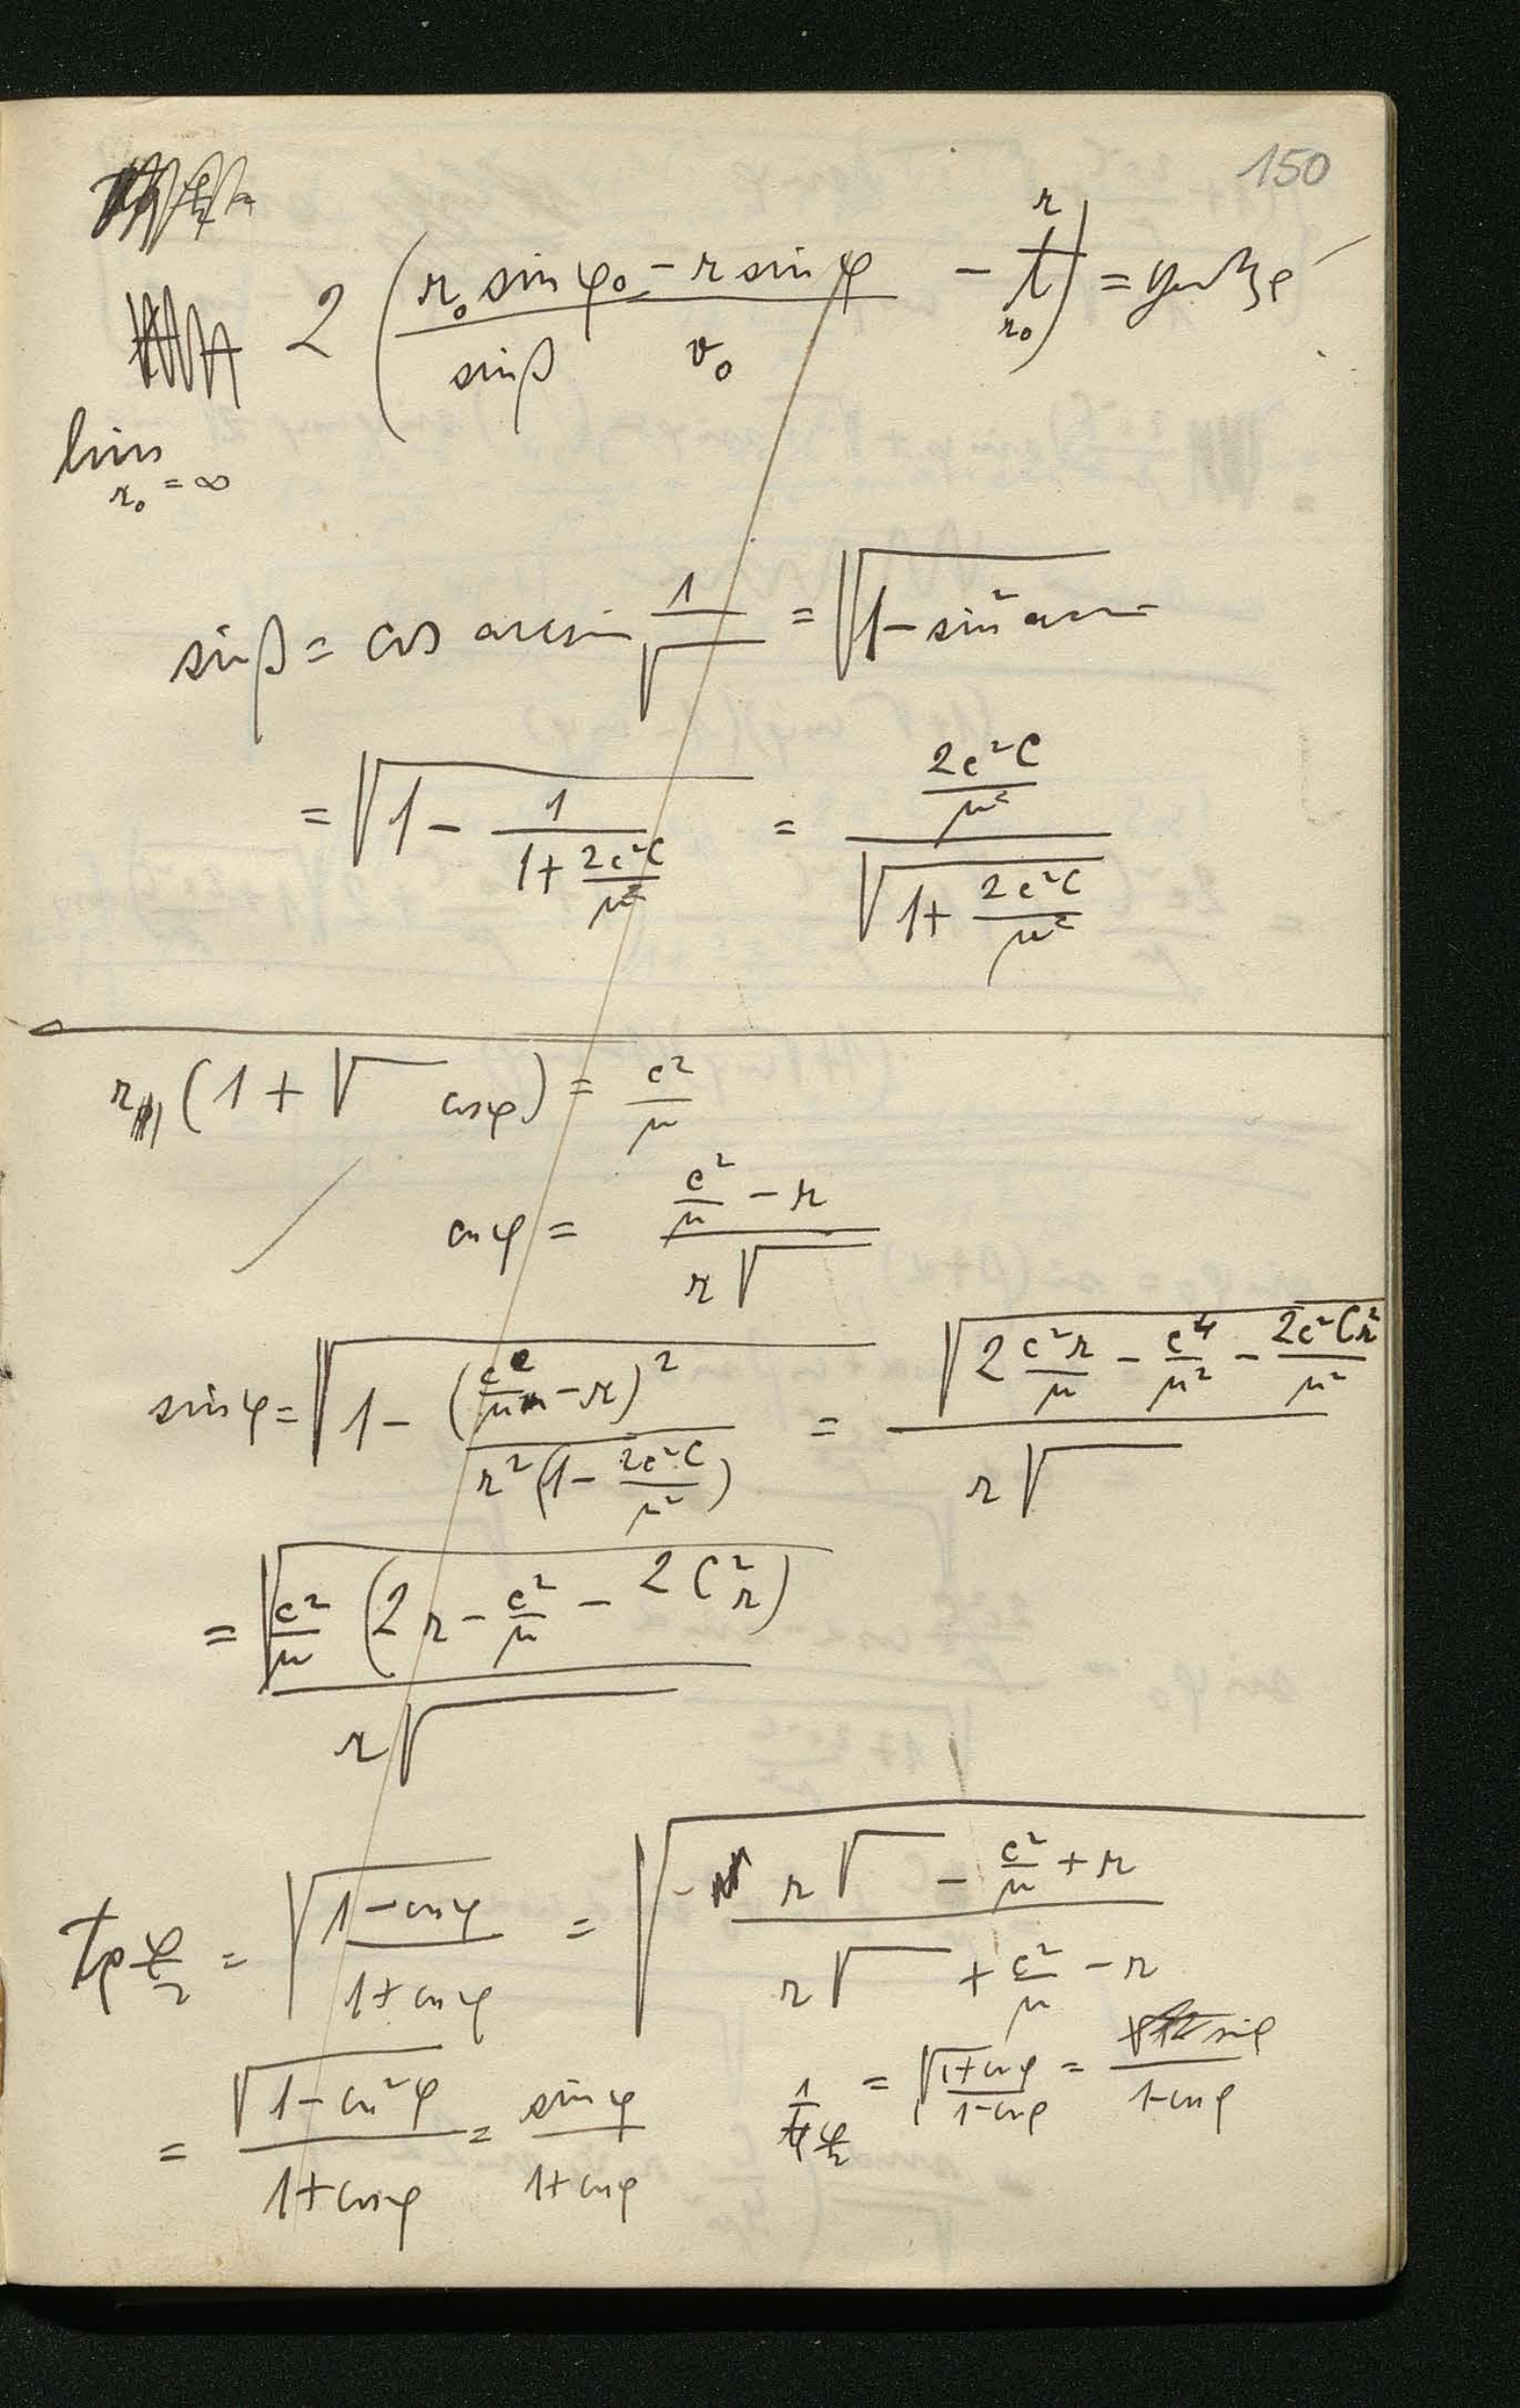 150
2 ( (r₀ sin φ₀ − r sin φ) / (sin β v₀) − t ) =
r
r₀
lim r₀ = ∞
sin β = cos arcsin 1/√ = √(1 − sin²
= √(1 − 1/(1 + 2c²C/μ²)) = (2c²C/μ²) / √(1 + 2c²C/μ²)
r (1 + √ cos φ) = c²/μ
cos φ = (c²/μ − r) / (r√ )
sin φ = √(1 − (c²/μ − r)² / (r²(1 − 2c²C/μ²))) = √(2 c²r/μ − c⁴/μ² − 2c²Cr²/μ²) / (r√ )
= √(c²/μ (2r − c²/μ − 2Cr²)) / (r√ )
tg φ/2 = √((1 − cos φ)/(1 + cos φ)) = √((r√ − c²/μ + r) / (r√ + c²/μ − r))
= √(1 − cos²φ) / (1 + cos φ) = sin φ / (1 + cos φ) 1/(tg φ/2) = √((1 + cos φ)/(1 − cos φ)) = sin φ / (1 − cos φ)